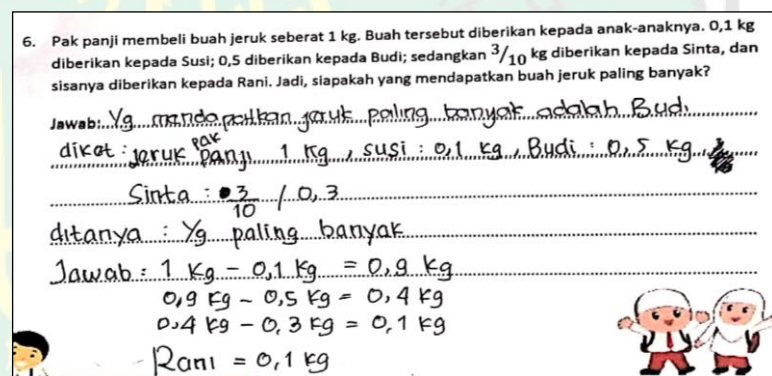 6. Pak panji membeli buah jeruk seberat 1 kg. Buah tersebut diberikan kepada anak-anaknya. 0,1 kg
diberikan kepada Susi; 0,5 diberikan kepada Budi; sedangkan 3/10 kg diberikan kepada Sinta, dan
sisanya diberikan kepada Rani. Jadi, siapakah yang mendapatkan buah jeruk paling banyak?
Jawab: Yg mendapatkan jeruk paling banyak adalah Budi
diket : jeruk pak panji 1 kg, susi : 0,1 kg, Budi : 0,5 kg,
Sinta : 3/10 / 0,3
ditanya : Yg paling banyak
Jawab : 1 Kg - 0,1 Kg = 0,9 kg
0,9 kg - 0,5 kg = 0,4 kg
0,4 kg - 0,3 kg = 0,1 kg
Rani = 0,1 kg